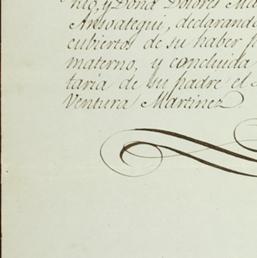 y Doña Dolores
declarando
cubierto de su haber
materno, y concluida
taria de su padre el
Ventura Martinez